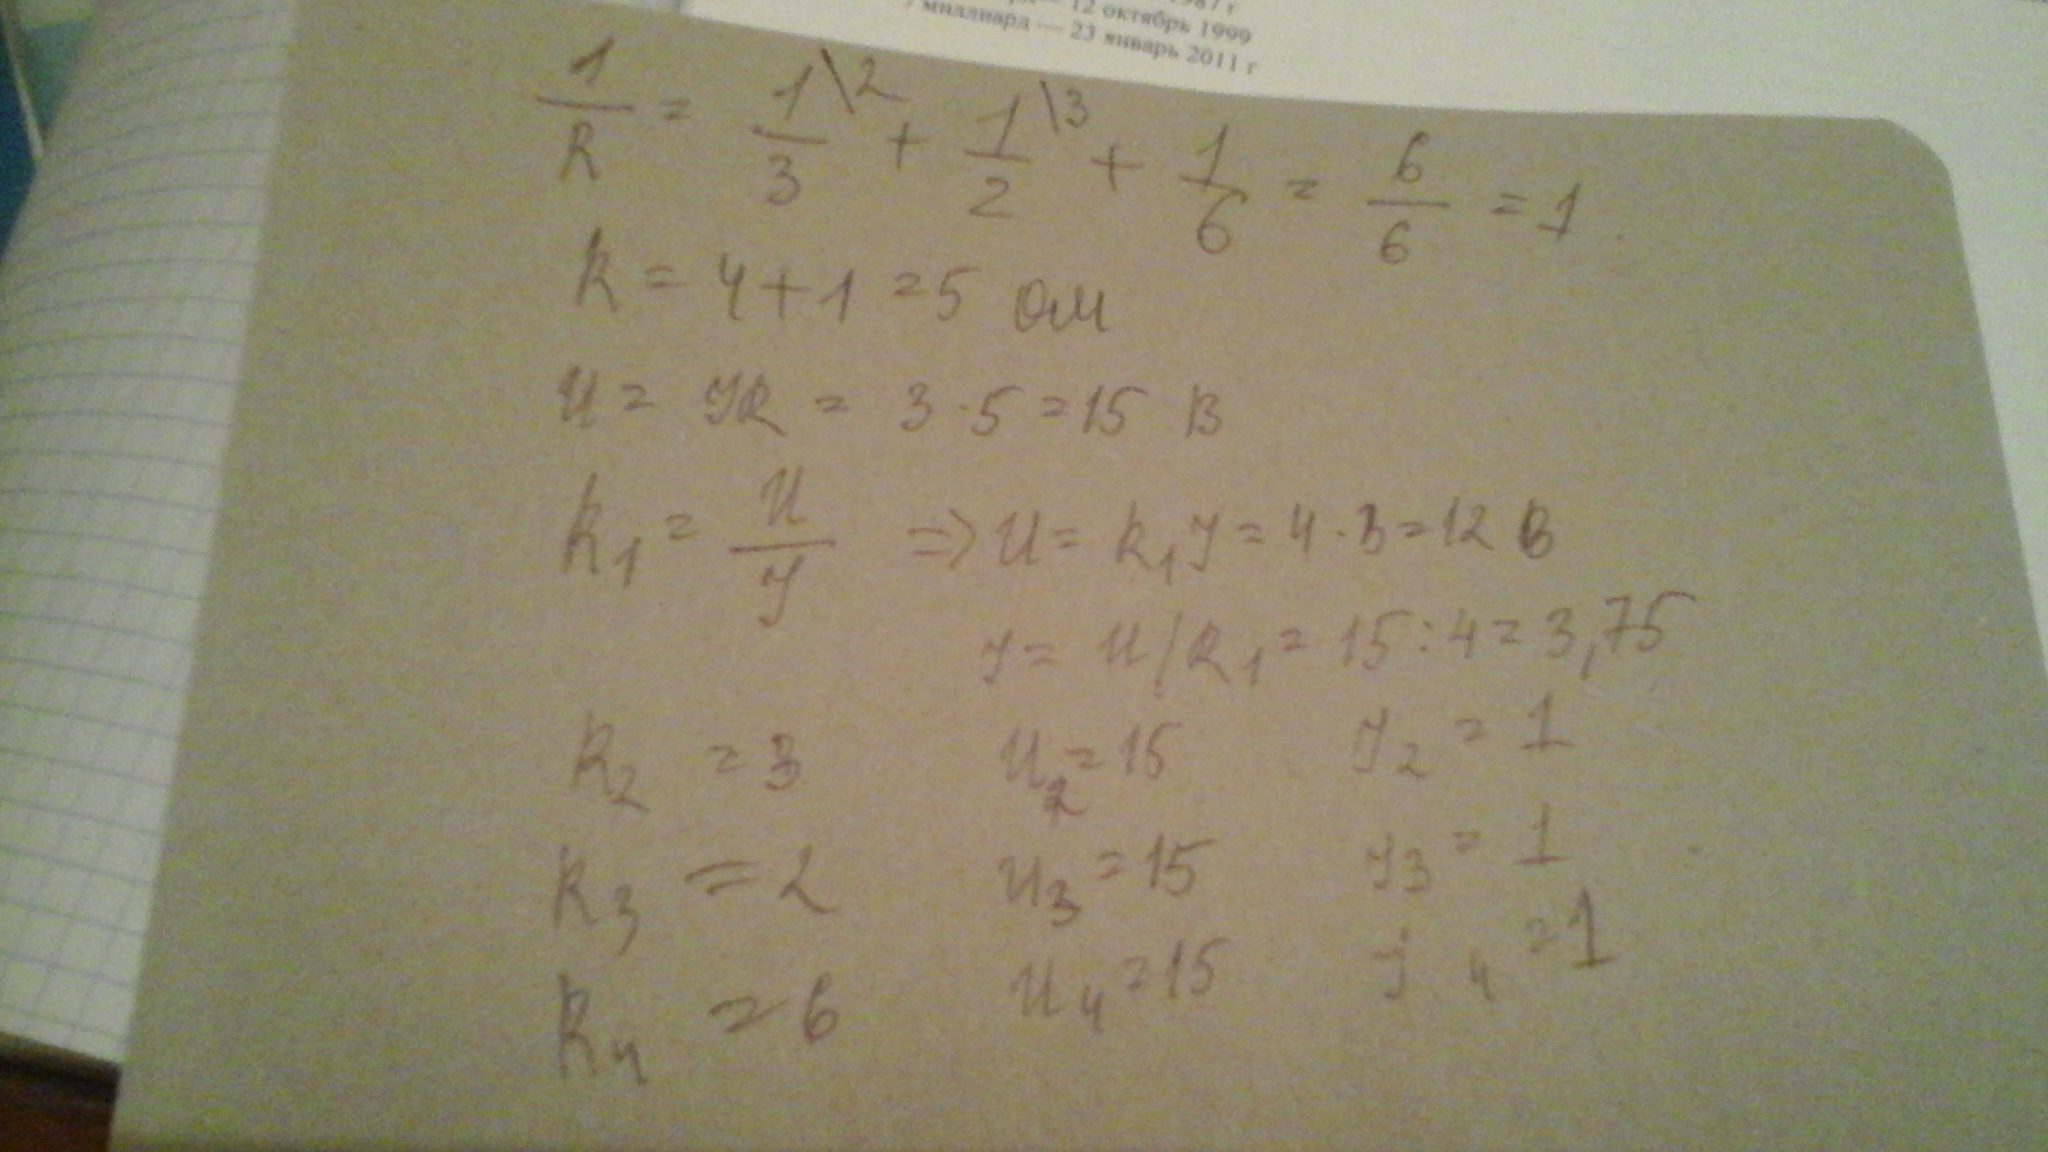 1987 г
— 12 октябрь 1999
7 миллиард — 23 январь 2011 г
1/R = 1\2/3 + 1\3/2 + 1/6 = 6/6 = 1
R = 4+1 = 5 ом
U = IR = 3·5 = 15 В
R₁ = U/I => U = R₁I = 4·3 = 12 В
I = U/R₁ = 15:4 = 3,75
R₂ = 3 U₂ = 15 I₂ = 1
R₃ = 2 U₃ = 15 I₃ = 1
R₄ = 6 U₄ = 15 I₄ = 1